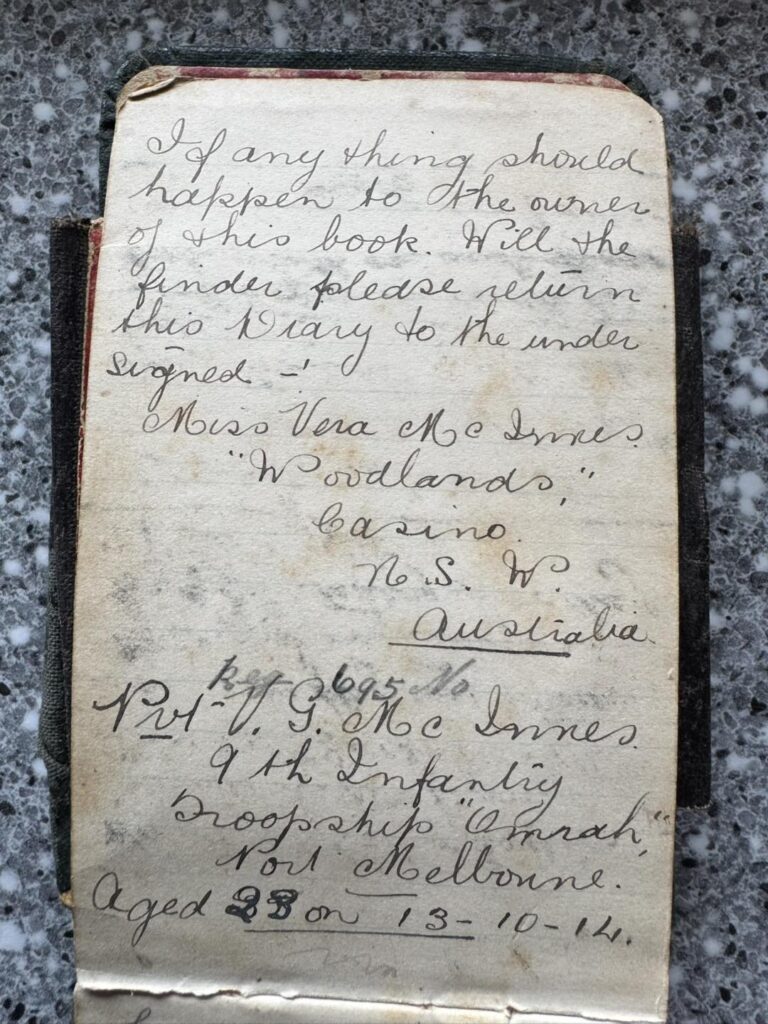 If any thing should
happen to the owner
of this book. Will the
finder please return
this Diary to the under
signed -!
Miss Vera Mc Innes.
"Woodlands,"
Casino.
N. S. W.
Australia.
Reg 695 No
Pvt J. G. Mc Innes.
9 th Infantry
Troopship "Omrah,"
Port Melbourne.
Aged on 13-10-14.